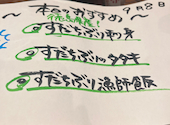 9月8日
～本日のおすすめ～
すだちぶり刺身
すだちぶりタタキ
すだちぶり漁師飯